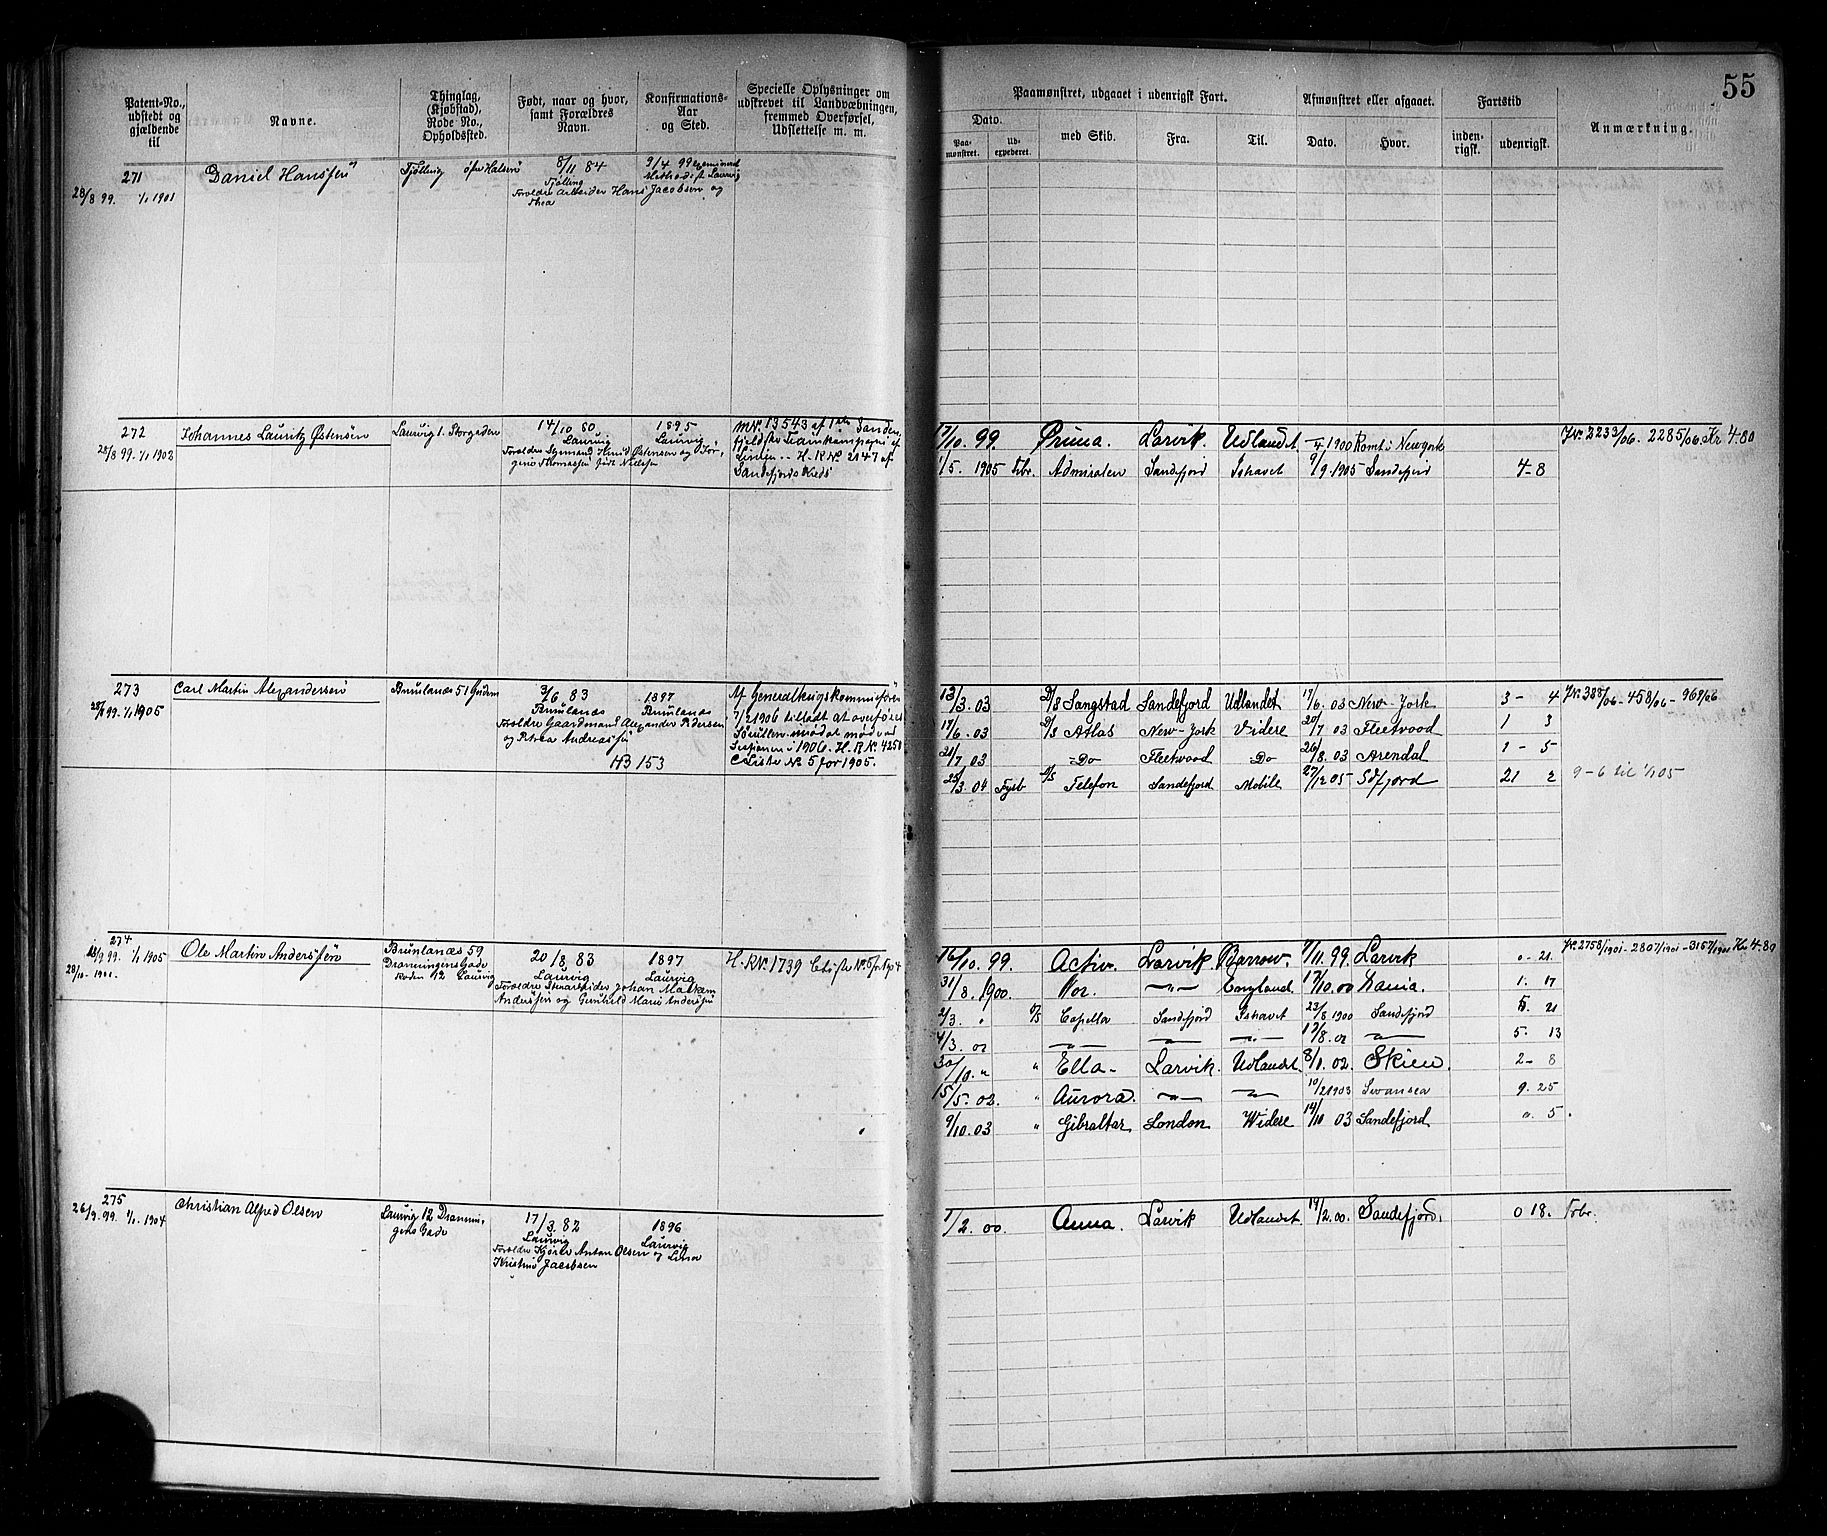 55
Patent-No., udstedt og gjældende til
Navne.
Thinglag, (Kjøbstad), Rode No., Opholdssted.
Født, naar og hvor, samt Forældres Navn.
Konfirmations- Aar og Sted.
Specielle Oplysninger om udskrevet til Landværbningen, fremmed Overførsel, Udslettelse m. m.
Paamønstret, udgaaet i udenrigsk Fart.
Dato.
Paa- mønstret.
Ud- expederet.
med Skib.
Fra.
Til.
Afmønstret eller afgaaet.
Dato.
Hvor.
Fartstid
inden- rigsk.
udenrigsk.
Anmærkning.
271
28/8 99. 1/1 1901
Daniel Hansen
Tjølling
8/11 84
Tjølling
Forældre Arbeider Hans Jacobsen og
Thea
9/4 99
Methodist Laurvig
272
28/8 99. 1/1 1903
Johannes Lauritz Østensen
Laurvig 1. Storgaden
14/10 80
Laurvig
1895
Laurvig
M.Nr. 13543 af 1ste Sønden-
Linjen H.R.Nr. 2147 af
Sandefjords Kreds
17/10. 99. Prima. Larvik. Udlandet. 1900 Rømt i New york
1/5. 1905 Frbr. Admiralen Sandefjord Ishavet 9/9. 1905 Sandefjord 4-8
J.Nr. 2233/06. - 2285/06. Kr 4-80
273
28/8 99. 1/1 1905
Carl Martin Alexandersen
Brunlanæs 51
3/6 83
Brunlanæs
Forældre Gaardmand Alexander Pedersen
og Petrea Andreasen
1897
Brunlanæs
H3 153
Af Generalkrigskommisæren
7/2 1906 tilladt at overføres
Sessionen i 1906. H.R.Nr. 4250
C Liste No 5 for 1905.
13/3. 03 Sangstad Sandefjord Udlandet 17/6. 03 New-York 3 - 4
17/6. 03 Atlas New-York Videre 20/7 03 Fleetwood 1 3
21/7 03 Do Fleetwood Do 26/8. 03 Arendal 1 - 5
25/3. 04 D/S Telefon Sandefjord Mobile 27/12 05 Sdfjord 21 2
J.Nr. 388/06 - 458/06 - 969/06
9-6 til 1/1 05
274
18/9 99. 1/1 1905
28/10 - 1901.
Ole Martin Anderssen
Brunlanæs 59
Dronningens Gade
Roden 12 Laurvig
20/8 83
Laurvig
Anderssen og Gunhild Marie Anderssen
1897
Laurvig
H.R.Nr. 1739 C Liste No. 5
16/10. 99. Activ. Larvik Barrow. 7/11. 99 Larvik 0 - 21
31/8. 1900. Nor. -"- England. 17/10. 00 1. 17
2/3. " Capella Sandefjord Ishavet 23/8 1900 Sandefjord 5. 21
4/3. 01 -"- -"- -"- 17/8. 01 -"- 5. 13
30/10. " " Ella - Larvik. Udlandet. 8/1. 02. Skien. 2 - 8
15/5. 02. " Aurora. -"- -"- 10/2 1903 Swansea 9. 25
9/10. 03 " Gibraltar London Widere 14/10 03 Sandefjord 0. 5.
J.Nr. 2758/1901 - 2807/1901 - 3157/1901 Kr. 4-80
275
26/9. 99. 1/1. 1904
Christian Alfred Olsen
Laurvig 12 Dronnin-
gens Gade
17/3. 82
Laurvig
Kristine Jacobsen
1896
Laurvig
1/2. 00. Anna. Larvik Udlandet. 19/2. 00. Sandefjord. 0 18. Frbr.